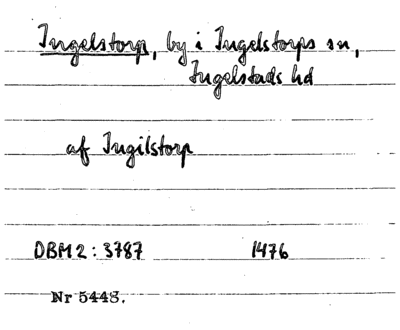 Ingelstorp, by i Ingelstorps sn,
Ingelstads hd
af Ingilstorp
DBM 2 : 3787 1476
Nr 5448.